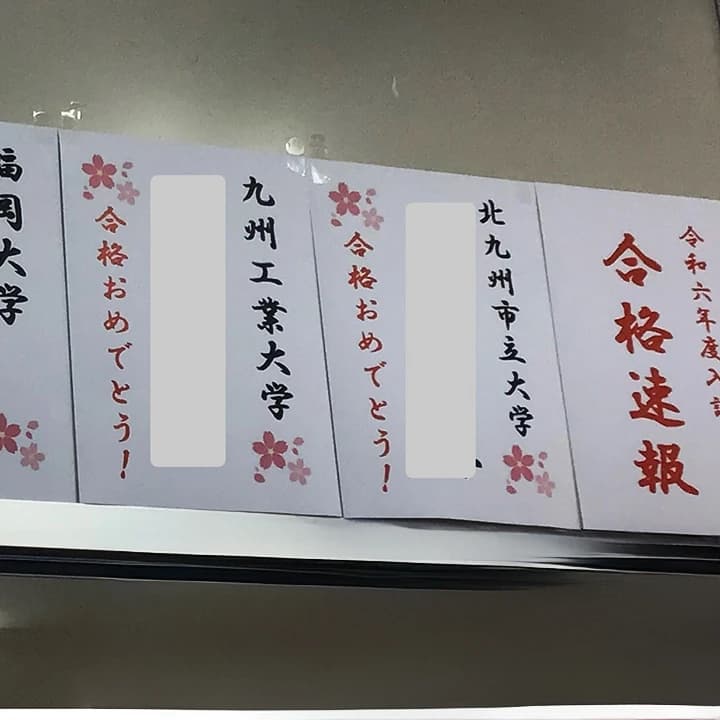 令和六年度入試
合格速報
北九州市立大学
合格おめでとう!
九州工業大学
合格おめでとう!
福岡大学